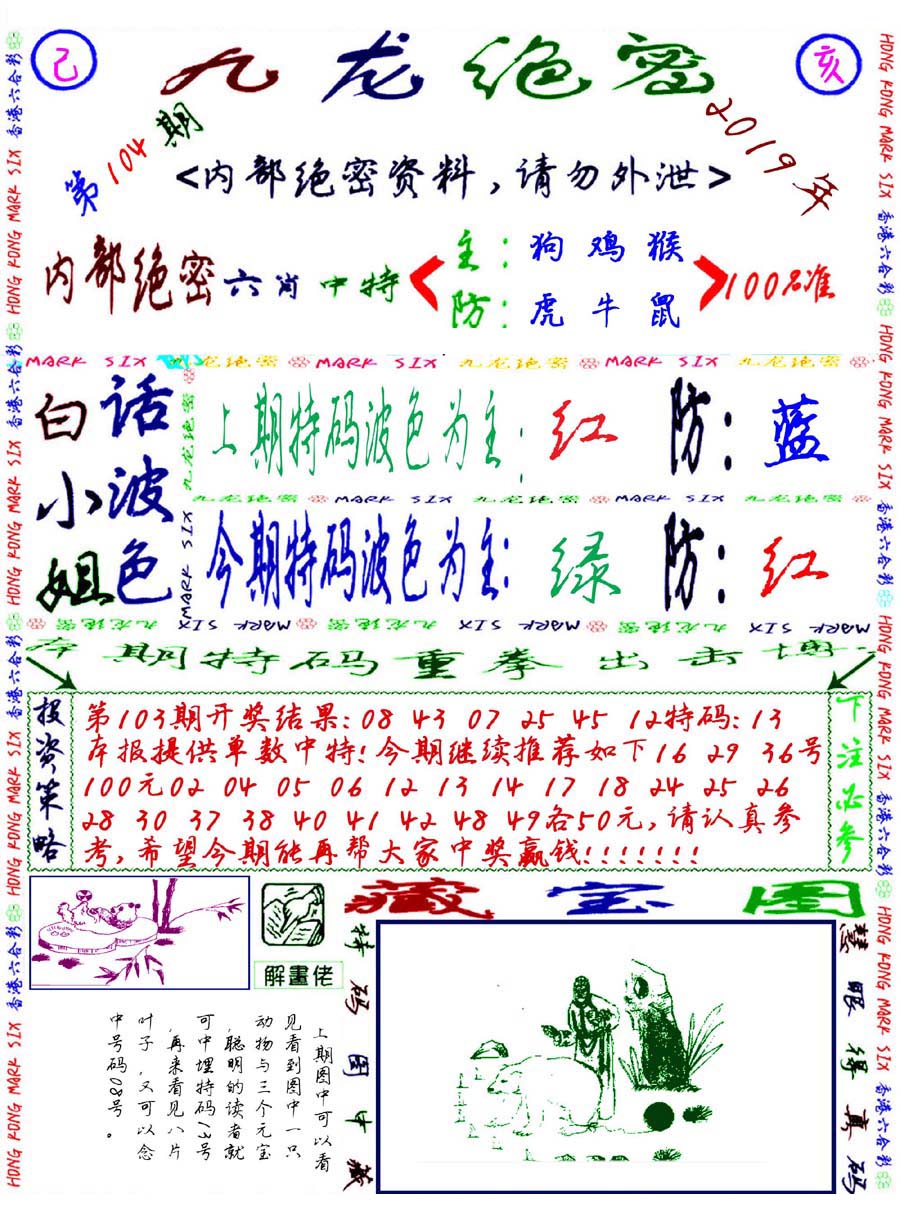 己
九龙绝密
亥
第104期
2019年
<内部绝密资料,请勿外泄>
内部绝密六肖中特
主:狗鸡猴
防:虎牛鼠
100%准
MARK SIX 九龙绝密 MARK SIX 九龙绝密 MARK SIX 九龙绝密
白小姐
话波色
九龙绝密 MARK SIX
上期特码波色为主:红 防:蓝
九龙绝密 MARK SIX 九龙绝密 MARK SIX 九龙绝密
今期特码波色为主:绿 防:红
MARK SIX 九龙绝密 MARK SIX 九龙绝密 MARK SIX 九龙绝密
本期特码重拳出击博
投资策略
第103期开奖结果:08 43 07 25 45 12特码:13
本报提供单数中特!今期继续推荐如下16 29 36号
100元02 04 05 06 12 13 14 17 18 24 25 26
28 30 37 38 40 41 42 48 49各50元,请认真参
考,希望今期能再帮大家中奖赢钱!!!!!!!
下注必参
藏宝图
解畫佬
上期图中可以看
见看到图中一只
动物与三个元宝
,聪明的读者就
可中埋特码13号
,再来看见八片
叶子,又可以念
中号码08号。
特码图中藏
慧眼得真码
HONG KONG MARK SIX 香港六合彩 HONG KONG MARK SIX 香港六合彩 HONG KONG MARK SIX 香港六合彩 HONG KONG MARK SIX 香港六合彩
HONG KONG MARK SIX 香港六合彩 HONG KONG MARK SIX 香港六合彩 HONG KONG MARK SIX 香港六合彩 HONG KONG MARK SIX 香港六合彩